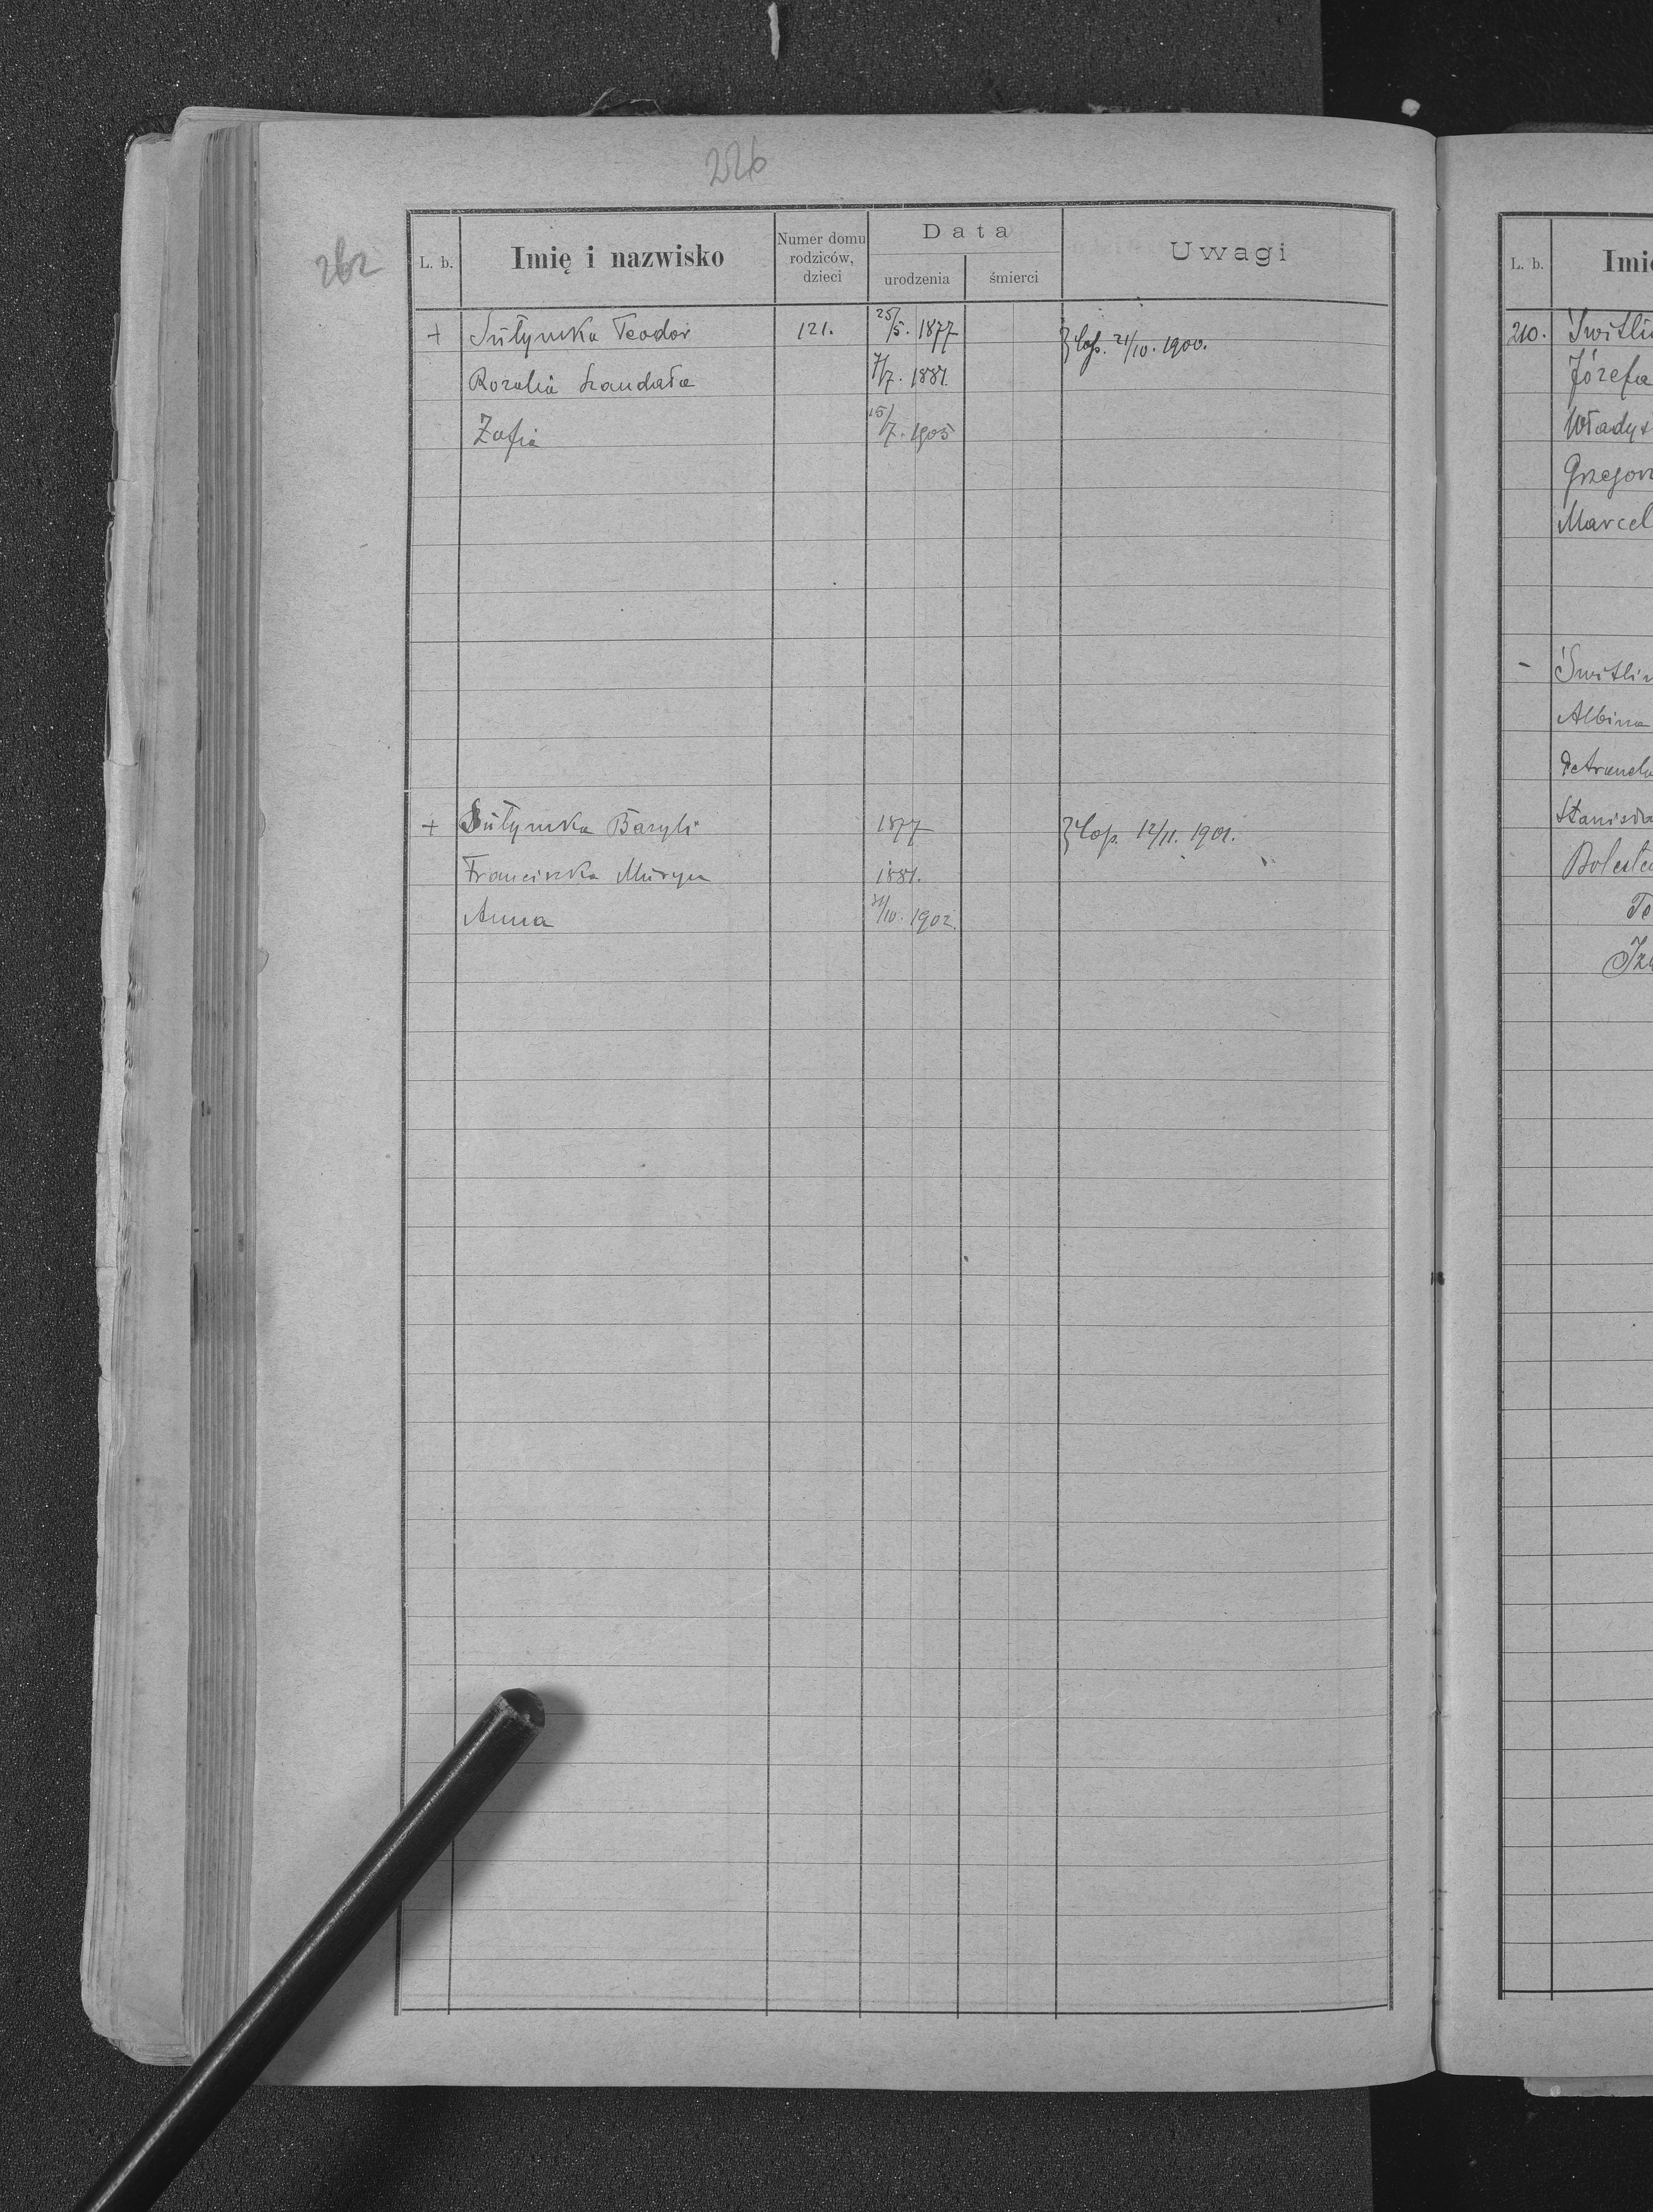 226
262
L. b. Imię i nazwisko Numer domu rodziców, dzieci Data urodzenia śmierci Uwagi
+ Sutymka Teodor 121. 25/5. 1877 } cop. 21/10. 1900.
Rozalia Szandała 7/7. 1881
Zofia 15/7. 1905
+ Sutymka Bazyli 1877 } cop. 12/11. 1901.
Franciszka Muryn 1881.
Anna 1902.
L. b. Imię
210. Switli
Józefa
Władys
Grzegorz
Marcel
- Switlin
Albina
Stanisła
Te